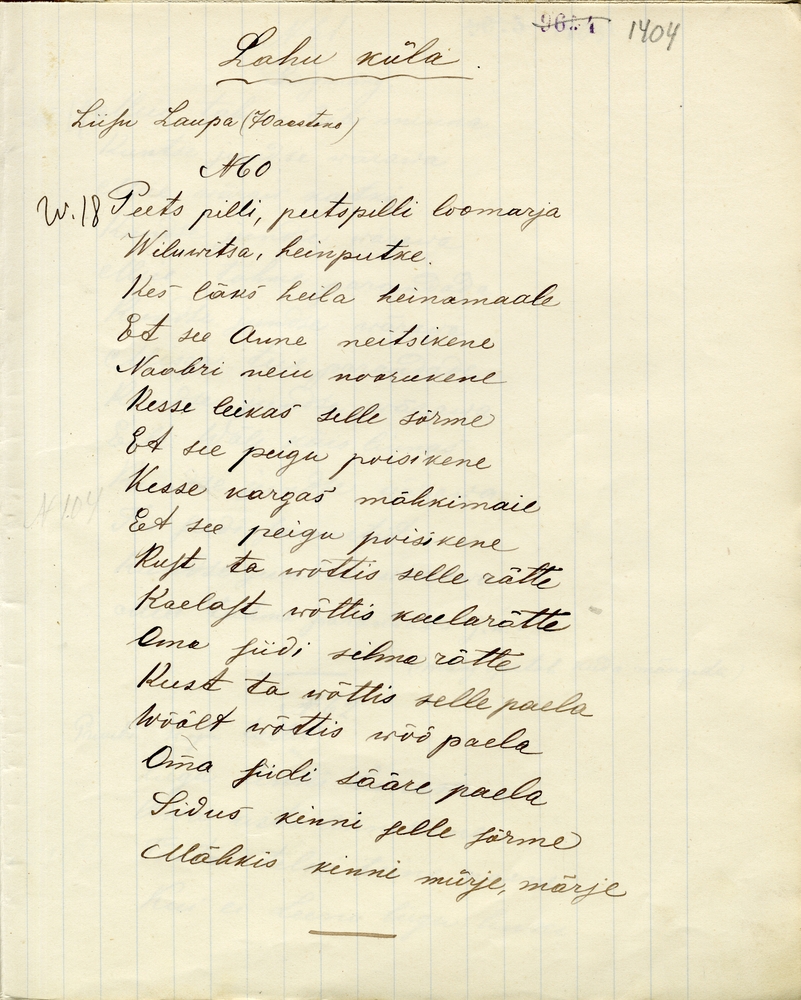 9654 1404
Lahu küla.
Liisu Laupa (70 aastane)
N 60
W. 18 Peets pilli, peetspilli loomarja
Wiluwitsa, heinputke.
Kes läks heila heinamaale
Et see Anne neitsikene
Naabri neiu noorukene
Kesse leikas selle sõrme
Et see peigu poisikene
Kesse kargas mähkimaie
Et see peigu poisikene
Kust ta wõttis selle rätte
Kaelast wõttis kaelarätte
Oma siidi silmarätte
Kust ta wõttis selle paela
Wöölt wõttis wöö paela
Oma siidi sääre paela
Sidus kinni selle sõrme
Mähkis kinni mürje, märje